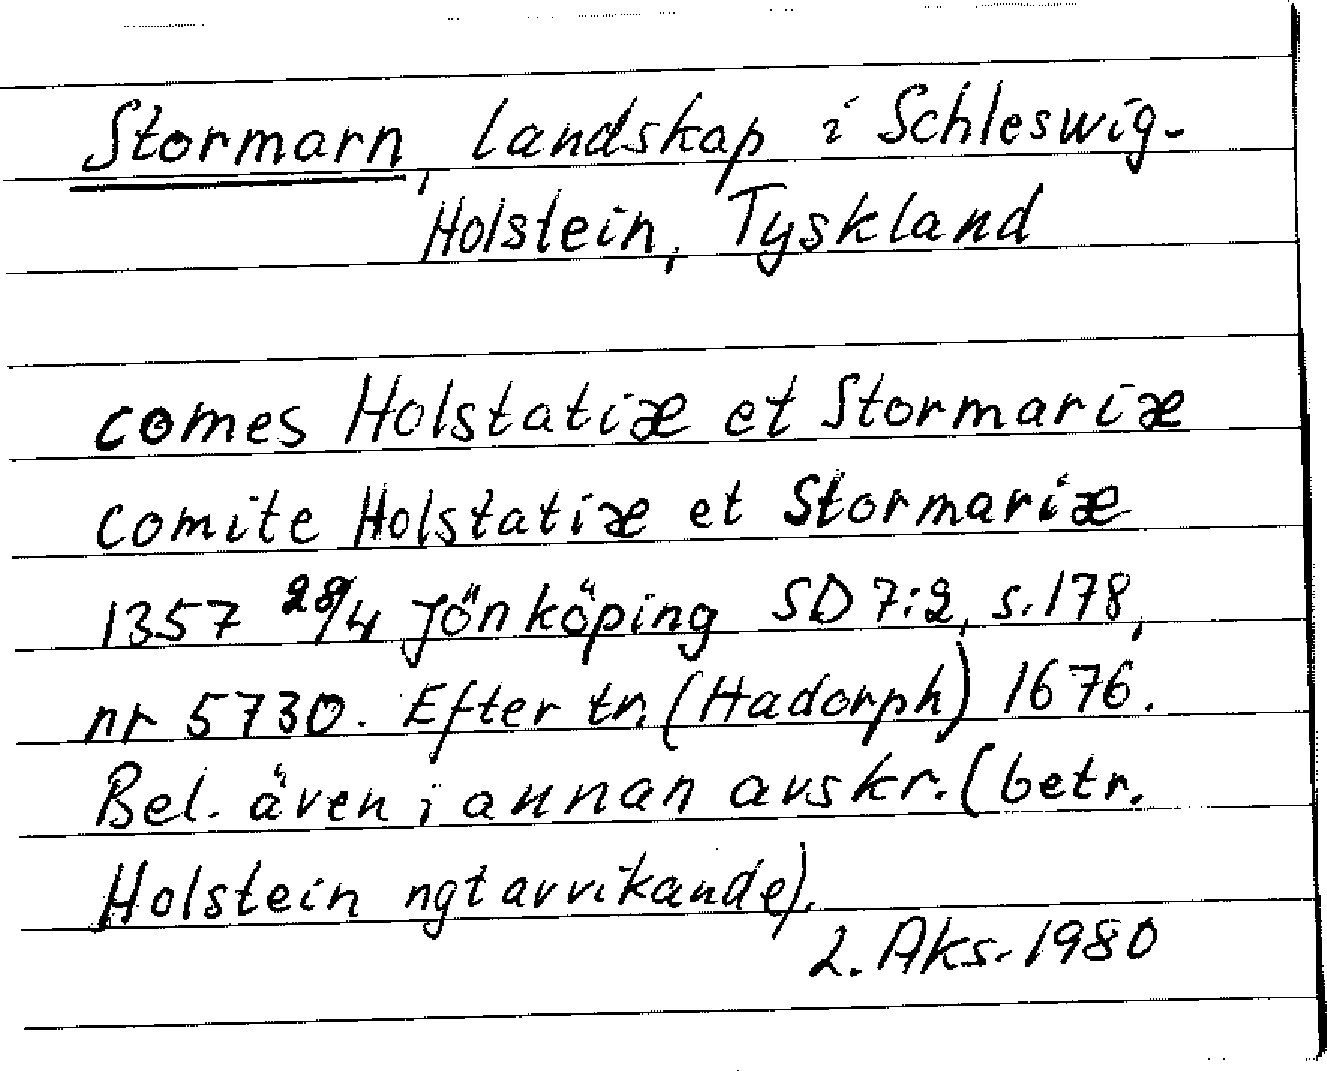 Stormarn, landskap i Schleswig-
Holstein, Tyskland
comes Holstatiæ et Stormariæ
comite Holstatiæ et Stormariæ
1357 28/4 Jönköping SD 7:2, s. 178,
nr 5730. Efter tr. (Hadorph) 1676.
Bel. även i annan avskr. (betr.
Holstein ngt avvikande).
2. Aks. 1980